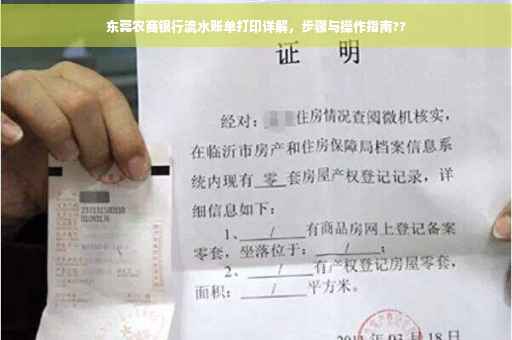 东莞农商银行流水账单打印详解，步骤与操作指南??
证 明
经对：住房情况查阅微机核实，
在临沂市房产和住房保障局档案信息系
统内现有 零 套房屋产权登记记录，详
细信息如下：
1、 / 有商品房网上登记备案
零套，坐落位于： / ；
2、 / 有产权登记房屋零套，
面积： / 平方米。
年 03 月 18 日